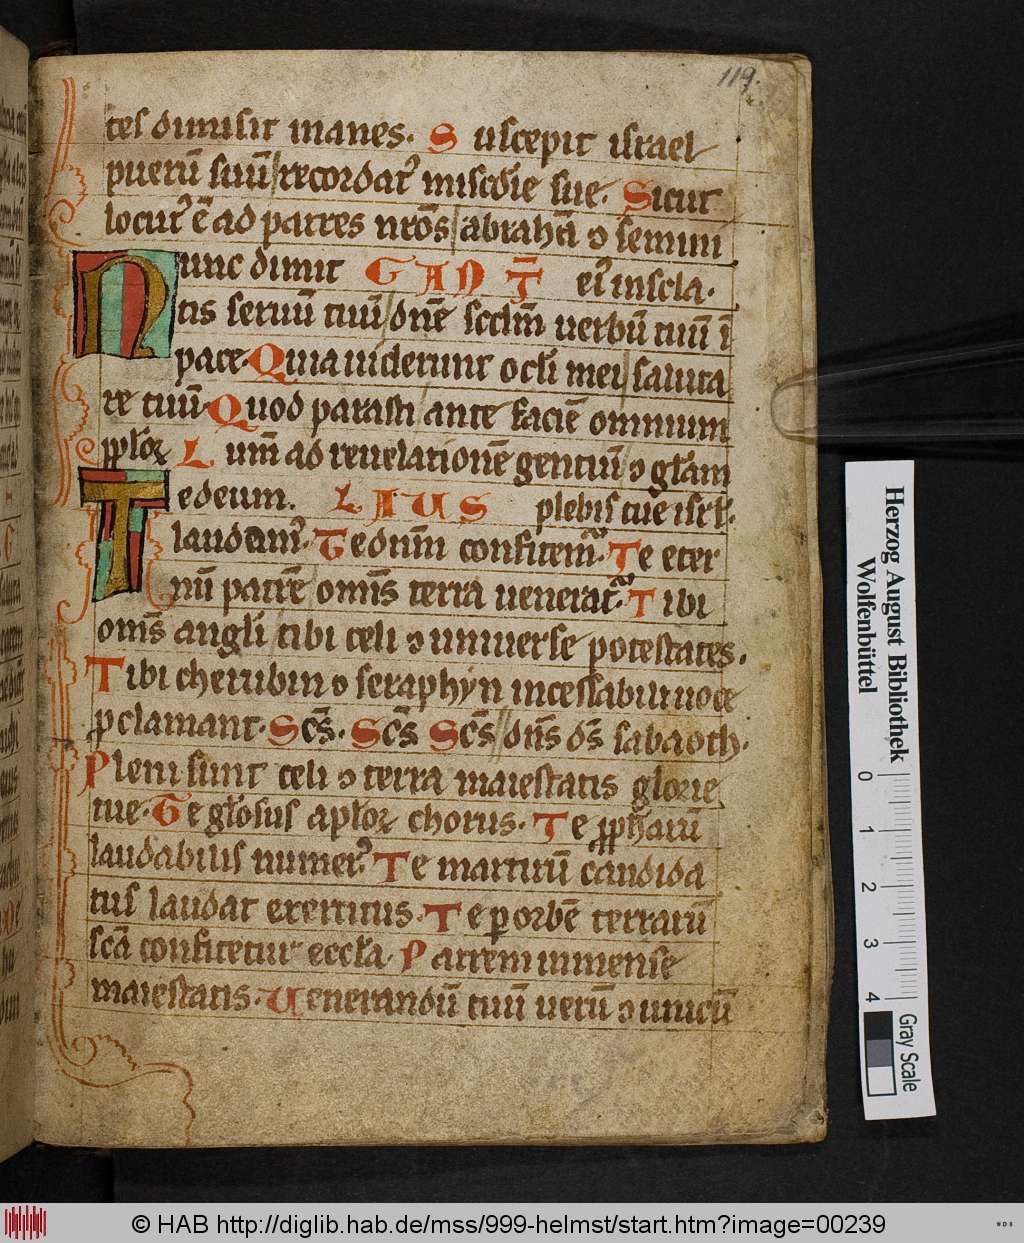 119.
tes dimisit inanes. Suscepit israel
puerū suū recordat᾽ miscd̄ie sue. Sicut
locut᾽ ē ad patres nr̄os abrahā ⁊ semini
Nunc dimit CANT̄ ei᾽ in scła.
tis seruū tuū dn̄e scdm̄ uerbū tuū ī
pace. Quia uiderunt oclī mei saluta
re tuū. Quod parasti ante faciē omnium
pploꝝ Lum̄ ad reuelationē gentiū ⁊ głam
Te deum. LAUS plebis tue isrł.
laudam᾽. Te dnm̄ confitem᾽. Te eter
nū patrē om̄is terra uenerat᾽. Tibi
om̄s anglī tibi celi ⁊ uniuerse potestates.
Tibi cherubin ⁊ seraphyn incessabili uoce
ꝓclamant. Sc̄s. Sc̄s Sc̄s dn̄s ds̄ sabaoth.
Pleni sunt celi ⁊ terra maiestatis glorie
tue. Te głosus apłoꝝ chorus. Te ꝓphetarū
laudabilis numer᾽. Te martirū candida
tus laudat exercitus. Te ꝑ orbē terrarū
scā confitetur eccła. Patrem inmense
maiestatis. Uenerandū tuū uerū ⁊ unicū
Herzog August Bibliothek
Wolfenbüttel
0 1 2 3 4
Gray Scale
© HAB http://diglib.hab.de/mss/999-helmst/start.htm?image=00239